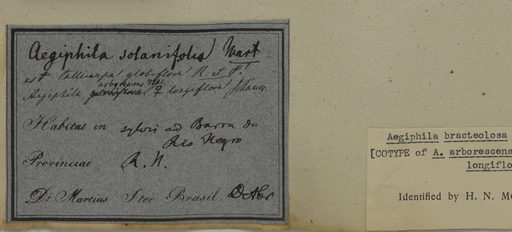 Aegiphila solanifolia Mart
est Callicarpa globiflora R et P.
Aegiphila arborescens Vahl β longiflora Schauer
Habitat in sylvis ad Barra do
Rio Negro
Provinciae R. N.
Dr Martius Iter Brasil. D Nbr
Aegiphila bracteolosa
[COTYPE of A. arborescens
longiflo
Identified by H. N. Mo